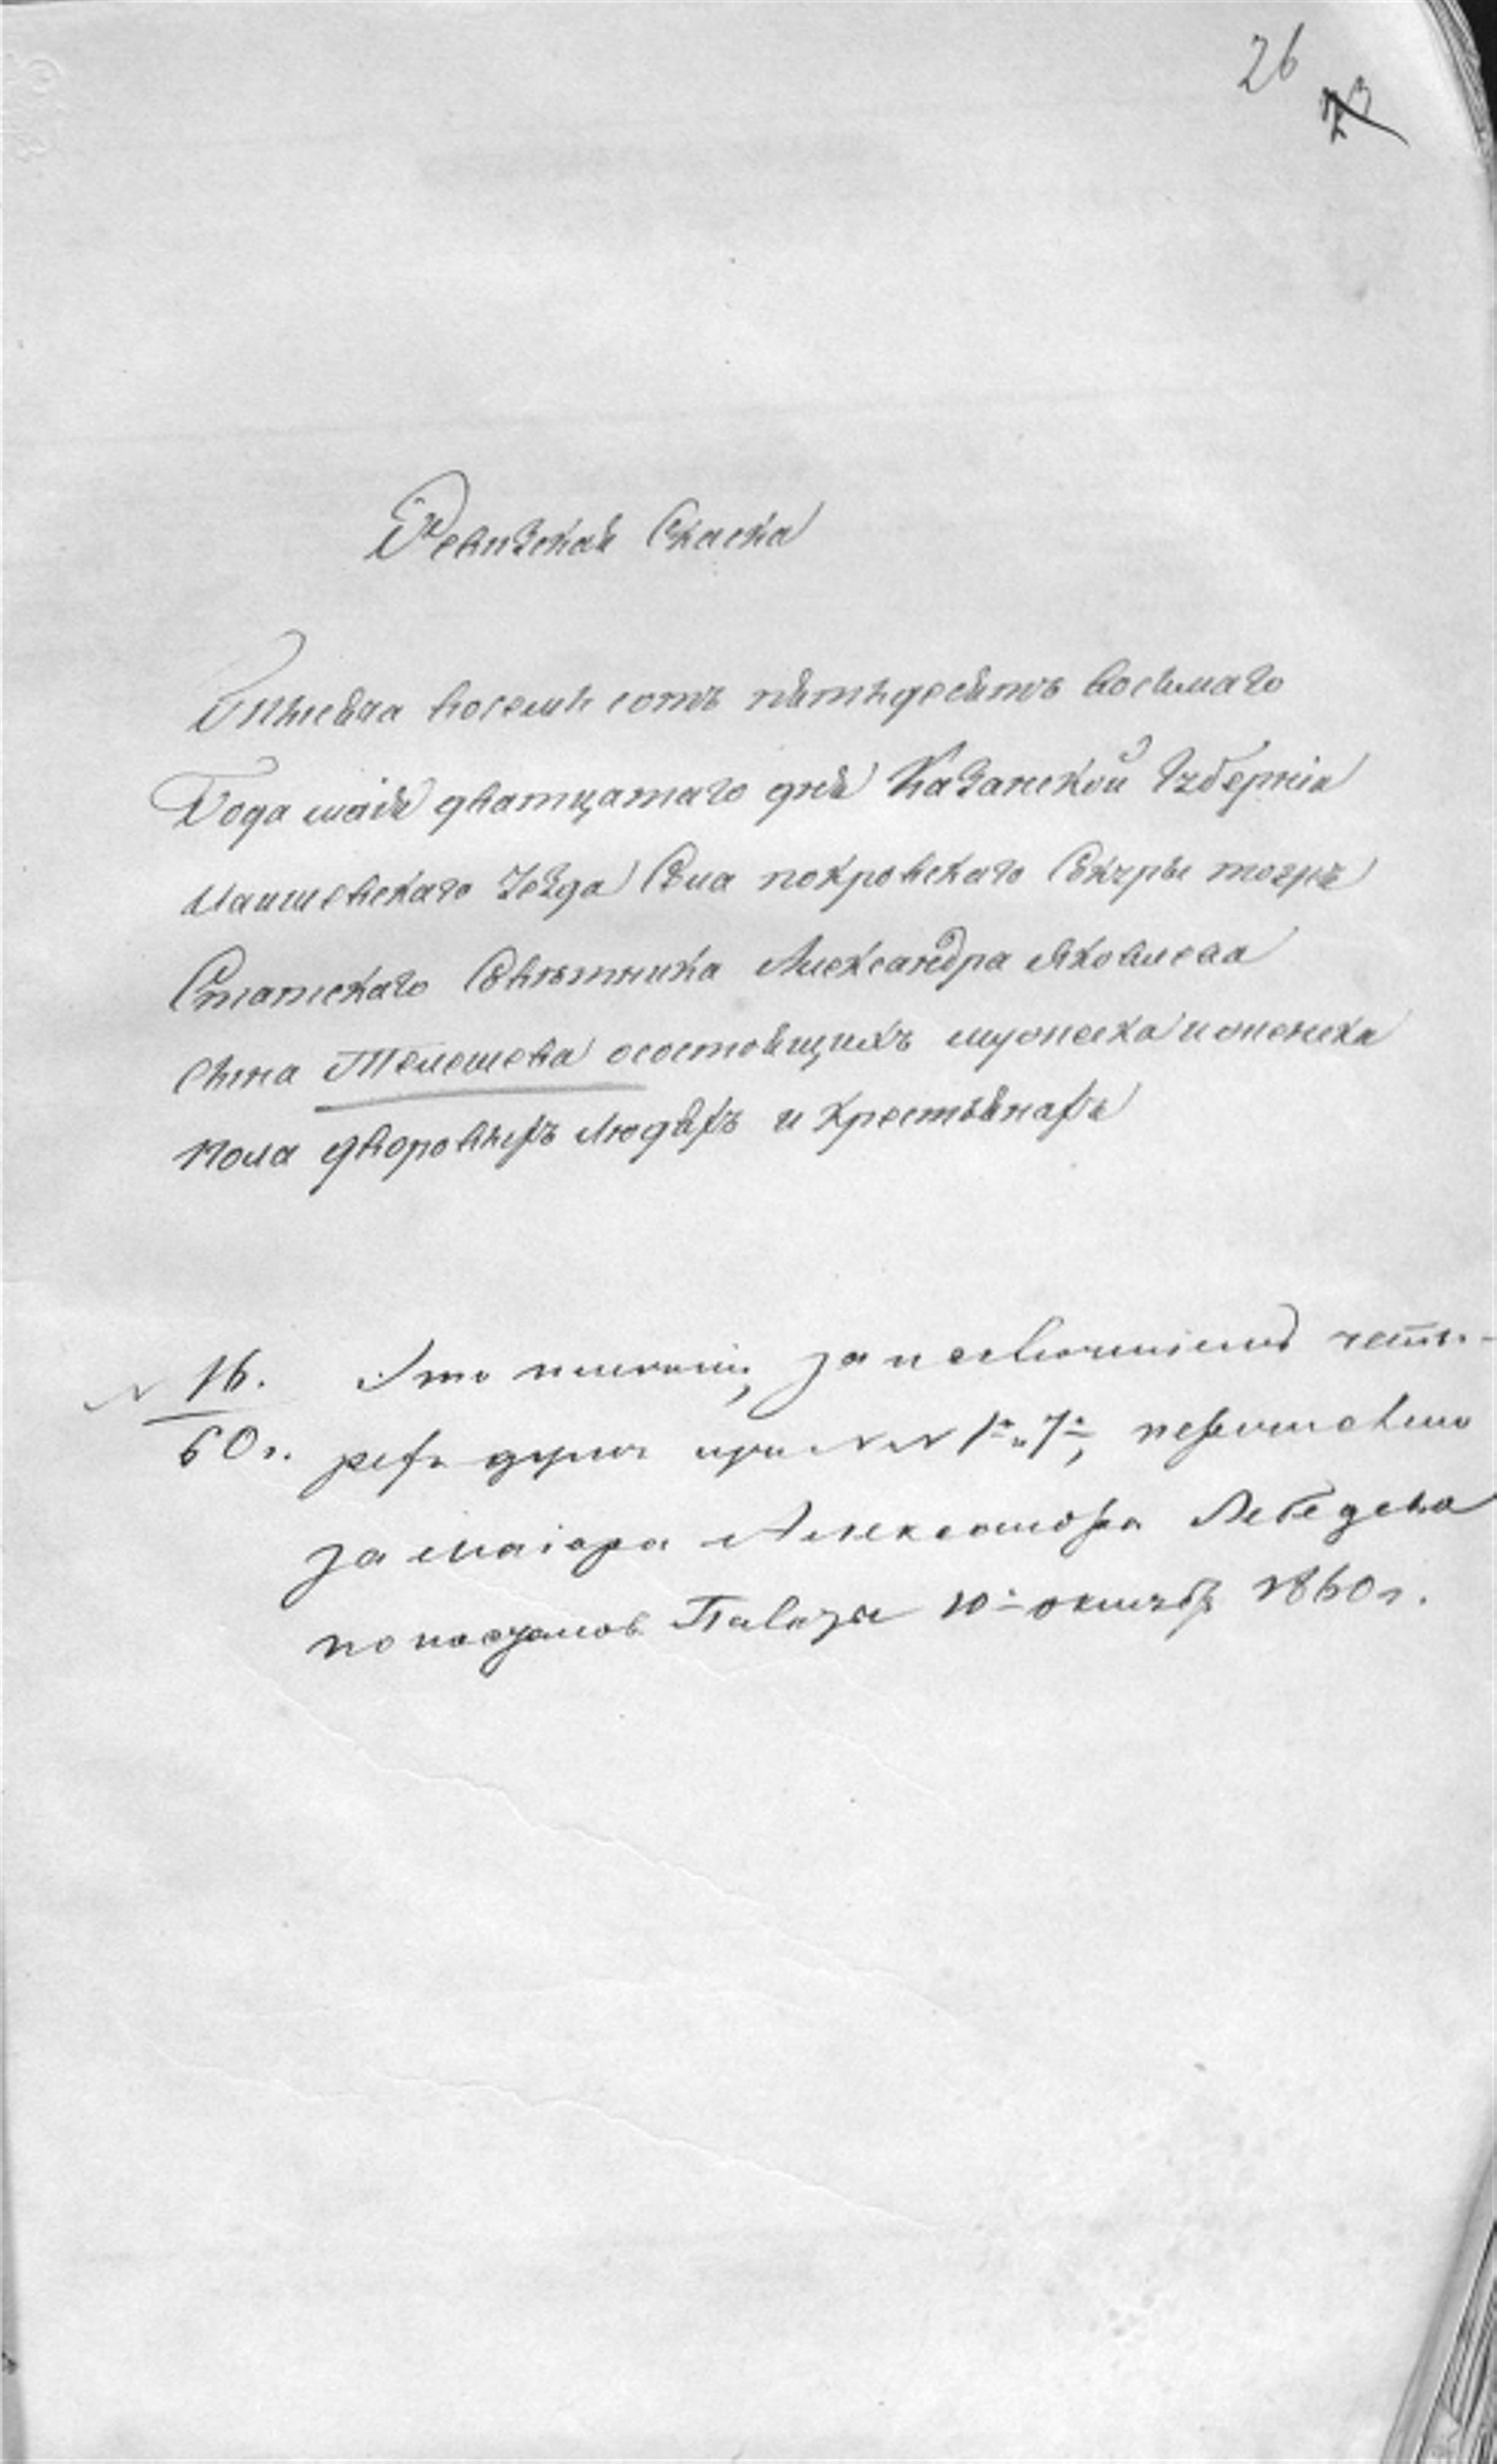 26
23
Ревизская Скаска
Тысяча восемь сотъ пятьдесятъ восьмаго
Года маія дватцатаго дня Казанской Губерніи
Лаишевскаго Уезда Села покровскаго Секуры тожъ
Статскаго Советника Александра Яковлева
сына Телешева осостоящихъ мужеска иженска
пола дворовыхъ людяхъ и крестьянахъ
№ 16. Это имѣніе, за исключеніемъ четы-
60 г. рехъ душъ при №№ 1м и 7м, перечислено
за маіора Александра Лебедева
по постанов. Палаты 10го октября 1860 г.